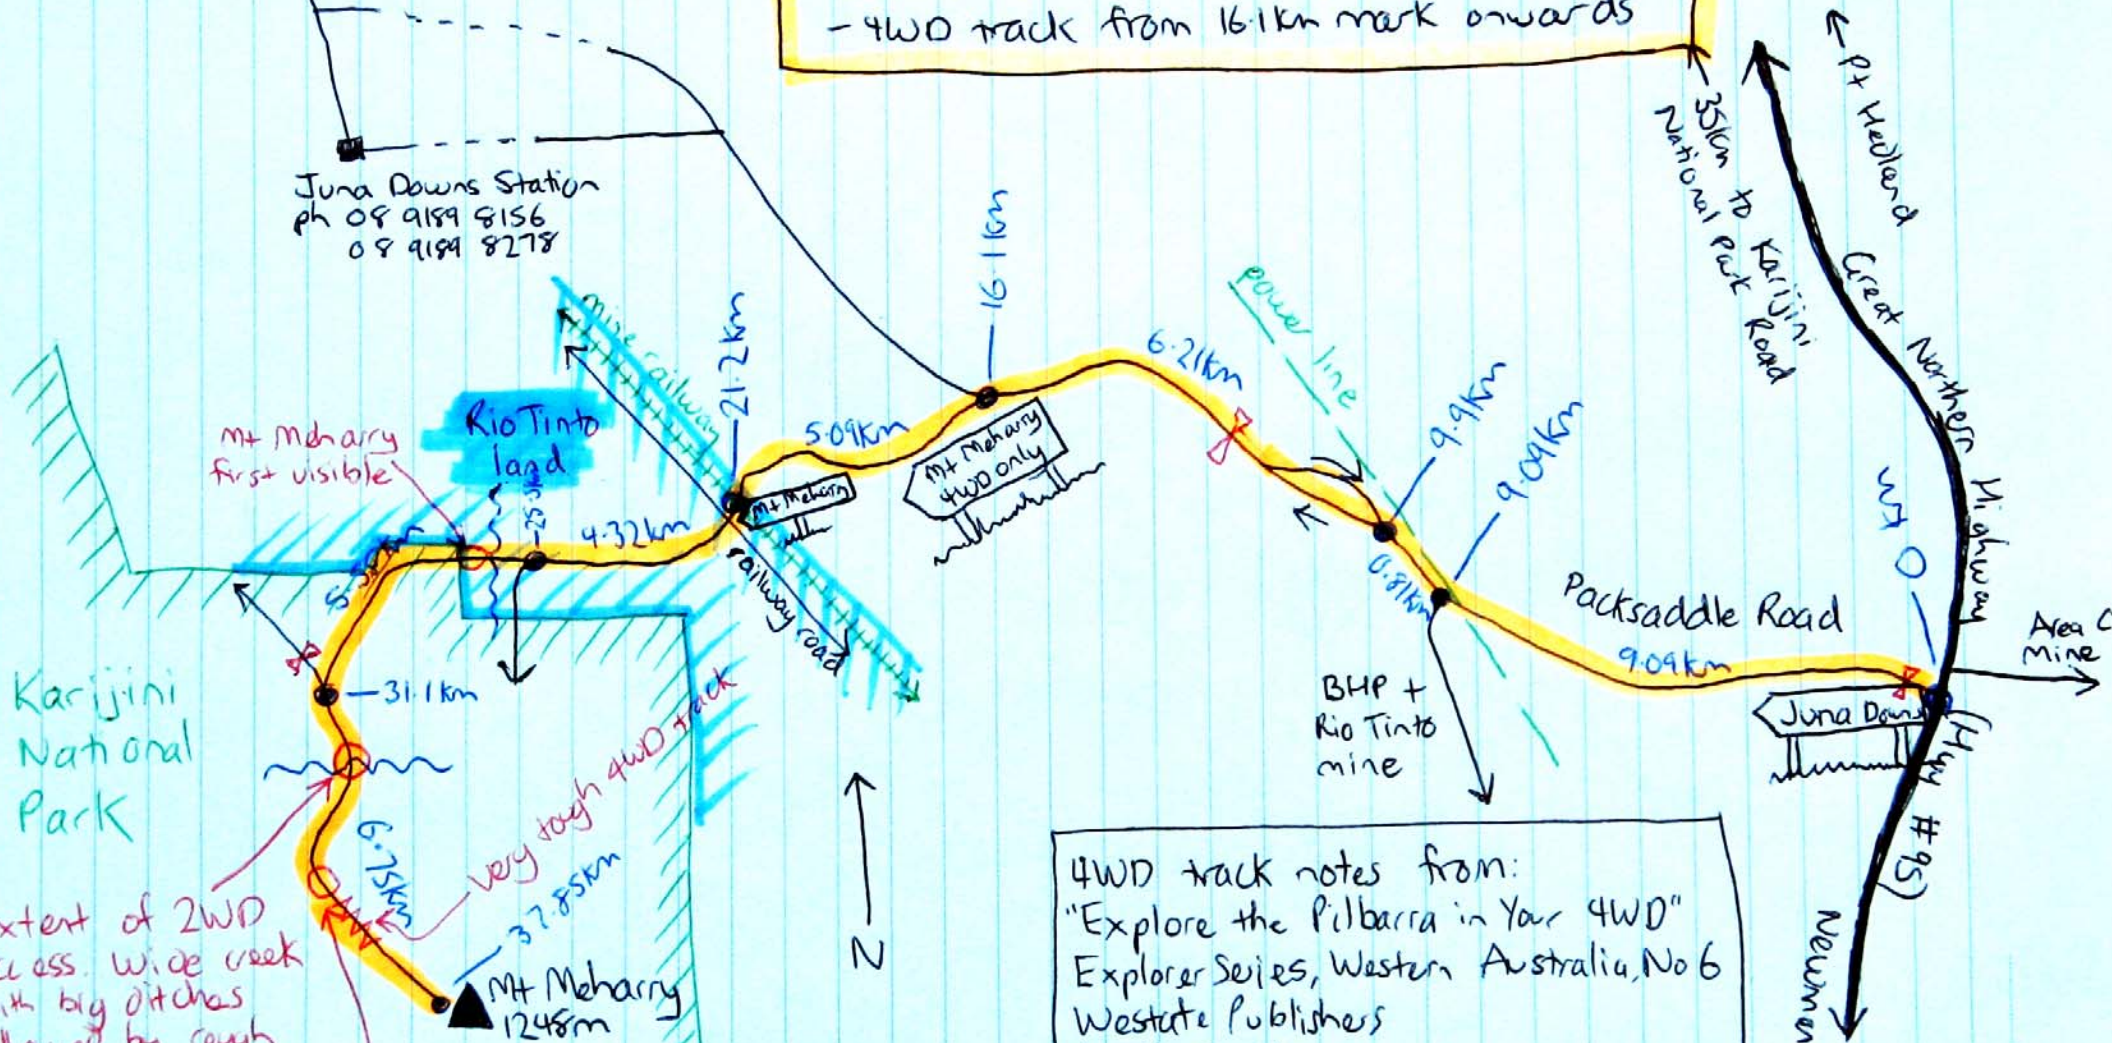 - 4WD track from 16.1km mark onwards
Pt Hedland
35km to Karijini
National Park Road
Great Northern Highway
(Hwy #95)
Newman
Juna Downs Station
ph 08 9189 8156
08 9189 8278
mine railway
21.2km
16.1km
power line
6.21km
9.9km
9.09km
0 km
Rio Tinto
land
Mt Meharry
first visible
5.09km
Mt Meharry
4WD only
Mt Meharry
4.32km
railway road
0.81km
Packsaddle Road
9.09km
Area C
Mine
Juna Downs
BHP +
Rio Tinto
mine
Karijini
National
Park
31.1km
very rough 4WD track
6.75km
37.85km
Mt Meharry
1248m
N
of 2WD
wide creek
big ditches
by rough
4WD track notes from:
"Explore the Pilbarra in Your 4WD"
Explorer Series, Western Australia, No 6
Westate Publishers